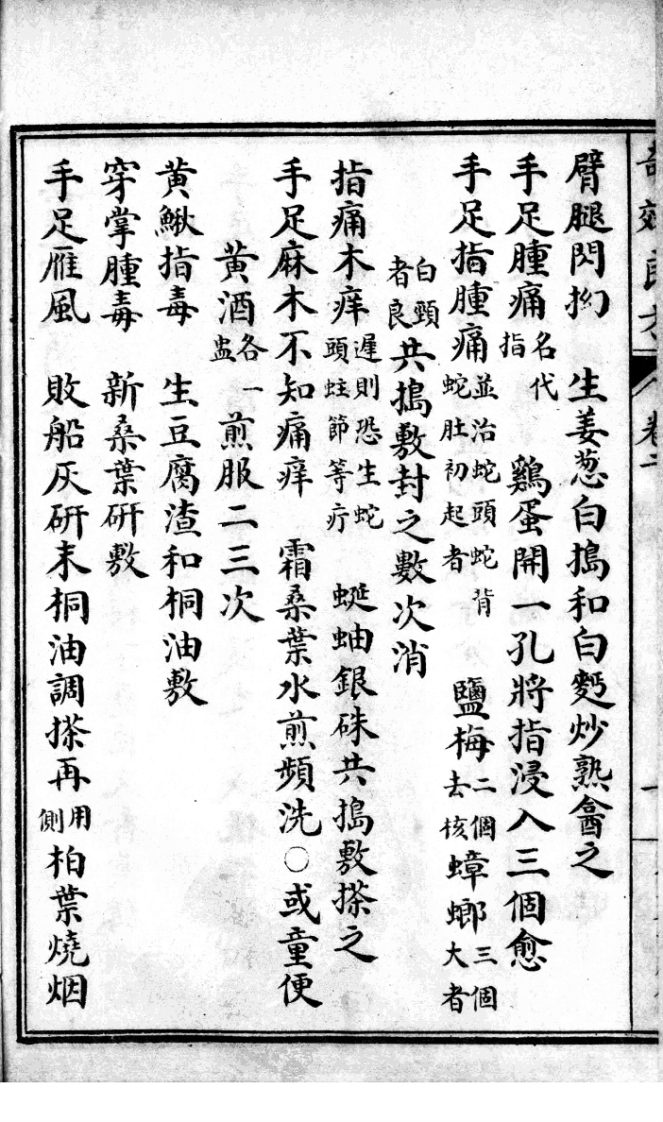 臂腿閃抝　生姜葱白搗和白麪炒熟罯之
手足腫痛名代指　鷄蛋開一孔將指浸入三個愈
手足指腫痛並治蛇頭蛇背蛇肚初起者　鹽梅二個去核蟑螂三個大者
白頸者良共搗敷封之數次消
指痛木痒遲則恐生蛇頭蛀節等疔　蜒蚰銀硃共搗敷搽之
手足麻木不知痛痒　霜桑葉水煎頻洗○或童便
黄酒各一盅煎服二三次
黄鰍指毒　生豆腐渣和桐油敷
穿掌腫毒　新桑葉研敷
手足雁風　敗船灰研末桐油調搽再用側柏葉燒烟